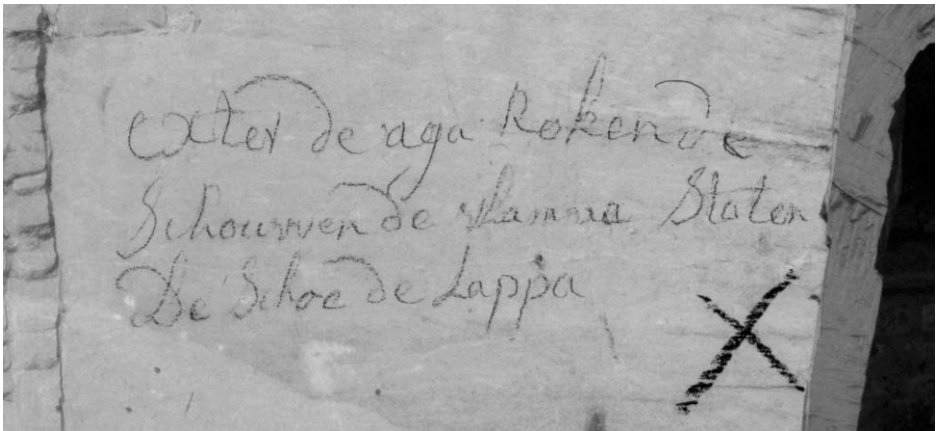 Exter de aga Rokende
Schouwen de vlamma Stoten
De Schoe de Lappa